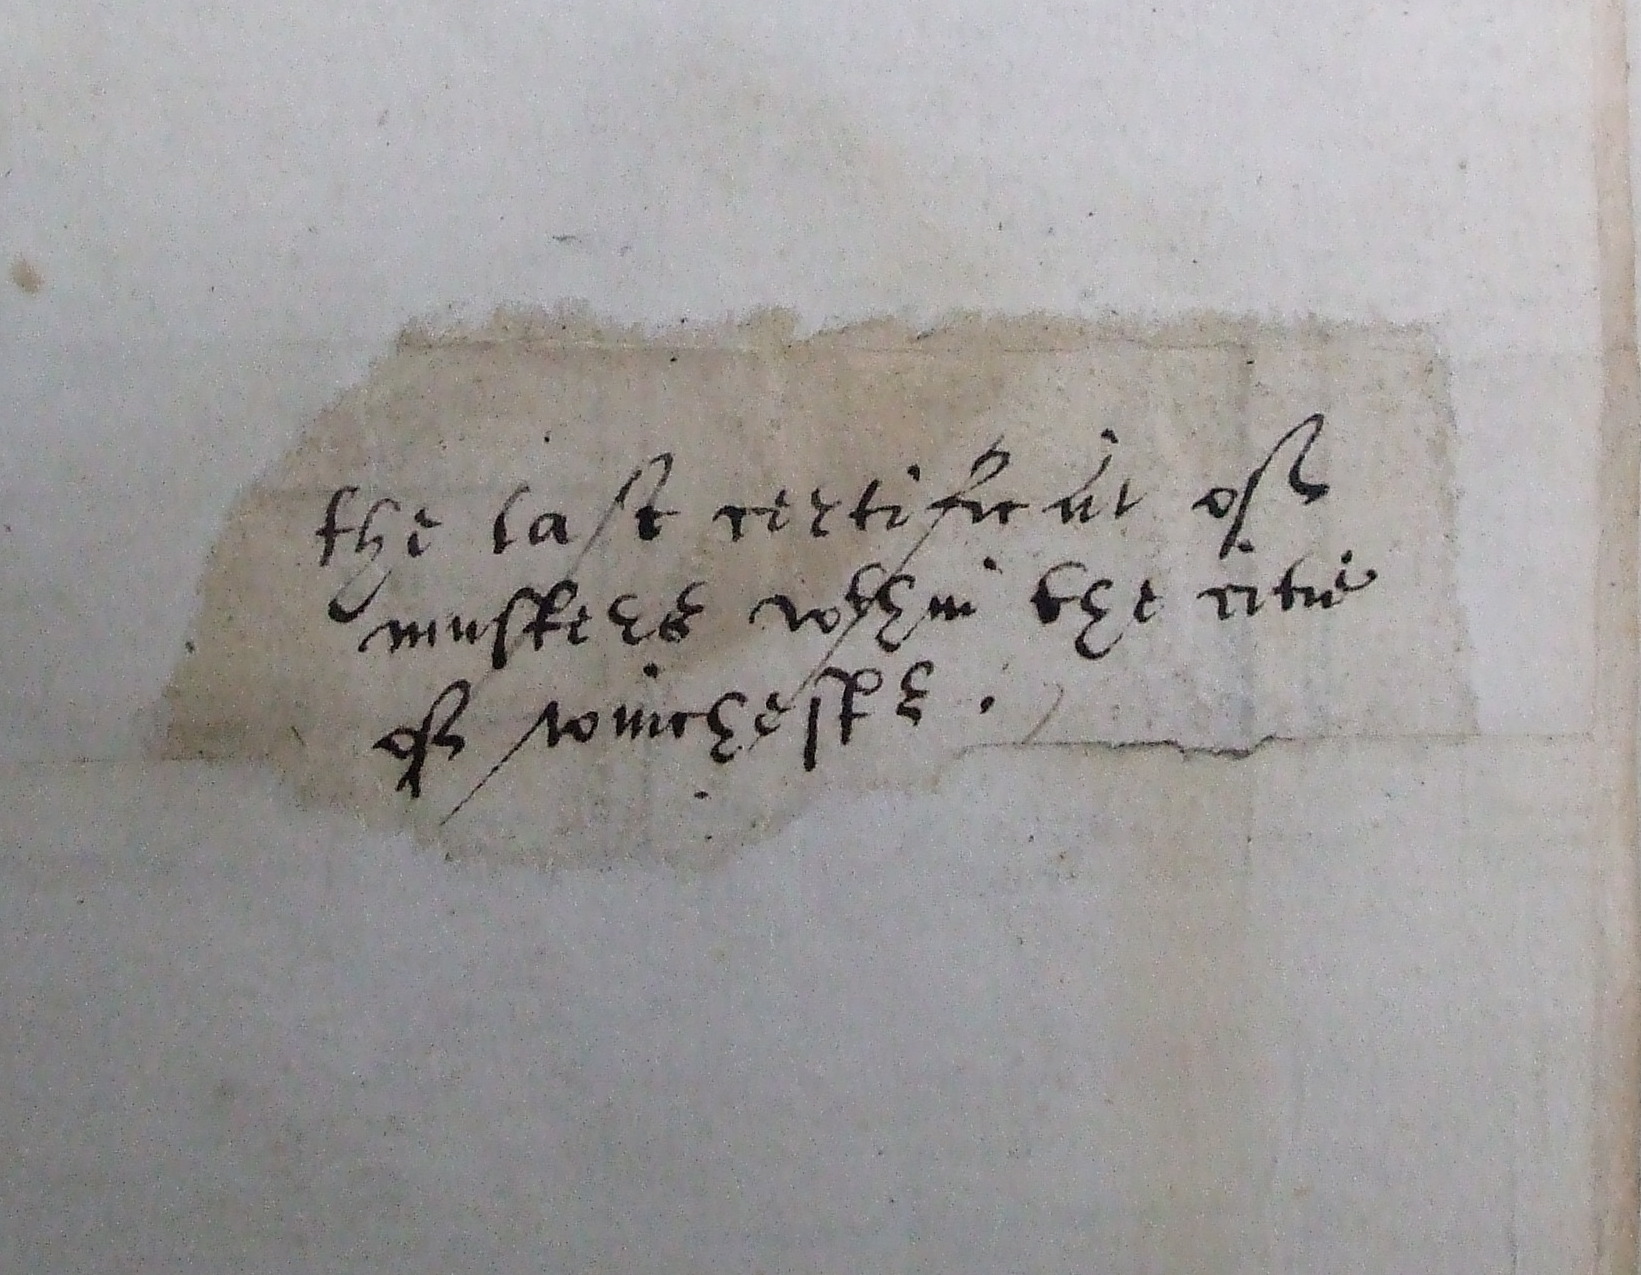 the last certificat of
musters wthin the citie
of winchestr.